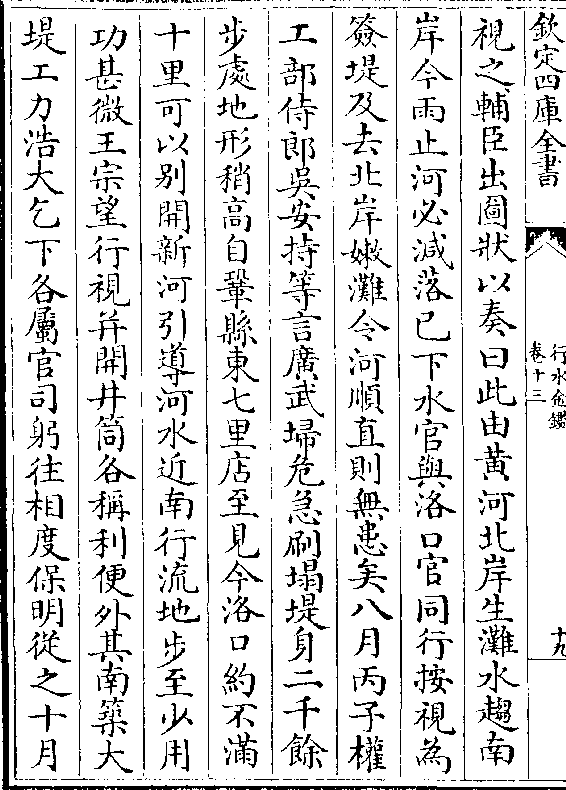 欽定四庫全書
行水金鑑
卷十三
十九
視之輔臣出圖狀以奏曰此由黃河北岸生灘水趨南
岸今雨止河必減落已下水官與洛口官同行按視為
簽堤及去北岸嫩灘令河順直則無患矣八月丙子權
工部侍郎吳安持等言廣武埽危急刷塌堤身二千餘
步處地形稍高自鞏縣東七里店至見今洛口約不滿
十里可以别開新河引導河水近南行流地步至少用
功甚微王宗望行視并開井筒各稱利便外其南築大
堤工力浩大乞下各屬官司躬往相度保明從之十月